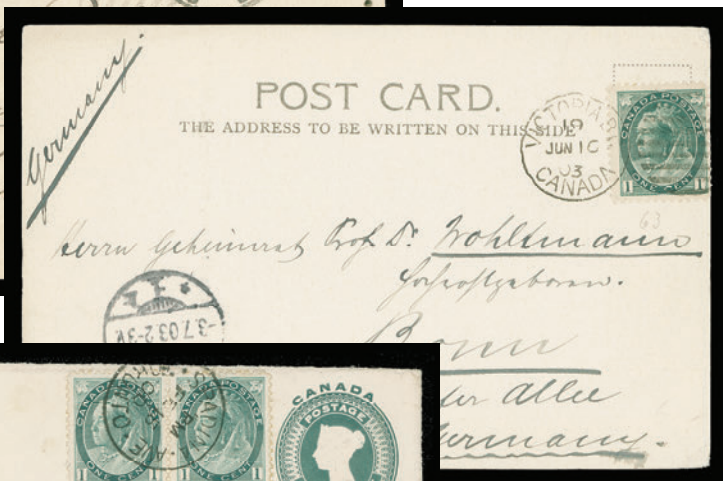 Germany.
POST CARD.
THE ADDRESS TO BE WRITTEN ON THIS SIDE
VICTORIA
19
JUN 16
03
CANADA
CANADA POSTAGE
1 ONE CENT 1
63
Herrn Geheimrat Prof. Dr. Wohltmann
Hochwohlgeboren.
Bonn
Allee
Germany.
-3.7.03.2-3
CANADA POSTAGE
1 ONE CENT 1
CANADA POSTAGE
ONE CENT 1
TORONTO
CANADA
POSTAGE